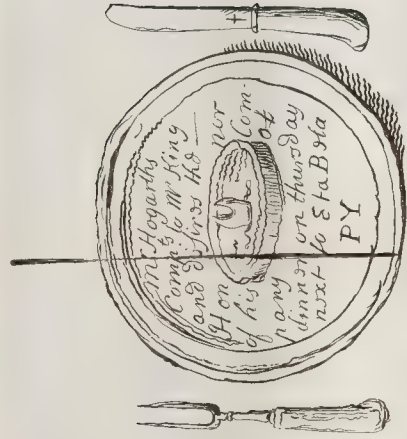 Mr Hogarths
Compts to Mr King
and desires the
Hon nor
of his Com-
pany at
dinner on thursday
next to EtaBeta
PY